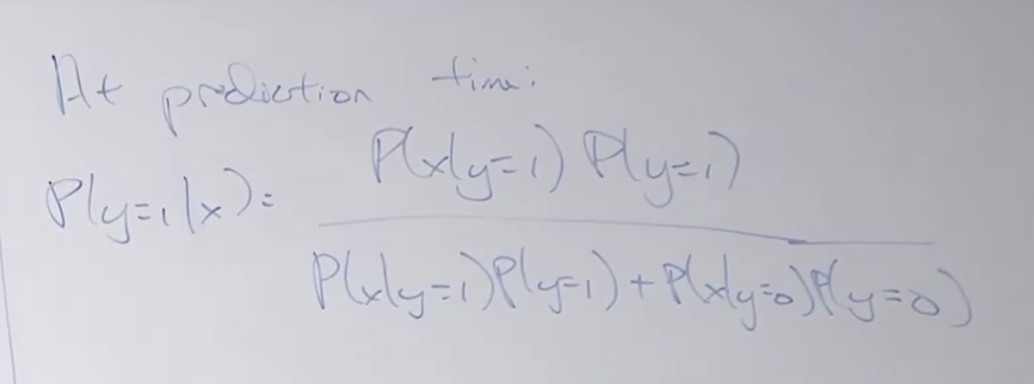 At prediction time:
P(x|y=1) P(y=1)
P(y=1|x)=
P(x|y=1)P(y=1)+P(x|y=0)P(y=0)